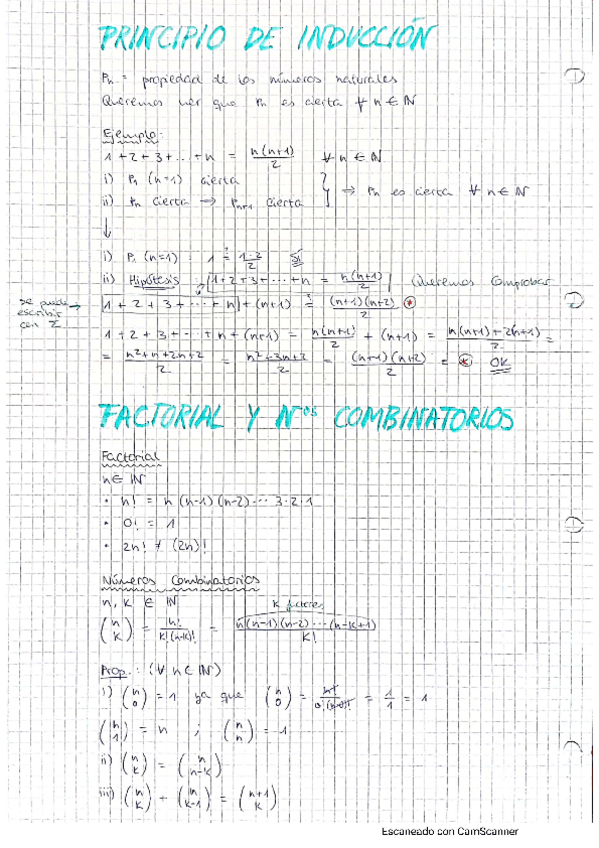 PRINCIPIO DE INDUCCIÓN
Pn = propiedad de los números naturales
Queremos ver que Pn es cierta ∀ n ∈ ℕ
Ejemplo:
1 + 2 + 3 + ... + n = n(n+1)/2 ∀ n ∈ ℕ
i) P1 (n=1) cierta
ii) Pn cierta → Pn+1 cierta } ⇒ Pn es cierta ∀ n ∈ ℕ
↓
i) P1 (n=1) : 1 =? 1·2/2 Sí
ii) Hipótesis : 1+2+3+...+n = n(n+1)/2 Queremos comprobar
se puede → escribir con Σ
1 + 2 + 3 + ... + n + (n+1) =? (n+1)(n+2)/2 *
1 + 2 + 3 + ... + n + (n+1) = n(n+1)/2 + (n+1) = n(n+1) + 2(n+1)/2 =
= n²+n+2n+2/2 = n²+3n+2/2 = (n+1)(n+2)/2 = * OK
FACTORIAL Y Nºˢ COMBINATORIOS
Factorial
n ∈ ℕ
• n! = n (n-1) (n-2) ... 3·2·1
• 0! = 1
• 2n! ≠ (2n)!
Números Combinatorios
n, k ∈ ℕ k factores
(n k) = n!/k!(n-k)! = n(n-1)(n-2)...(n-k+1)/k!
Prop.: (∀ n ∈ ℕ)
i) (n 0) = 1 ya que (n 0) = n!/0!(n-0)! = 1/1 = 1
(n 1) = n ; (n n) = 1
ii) (n k) = (n n-k)
iii) (n k) + (n k-1) = (n+1 k)
Escaneado con CamScanner